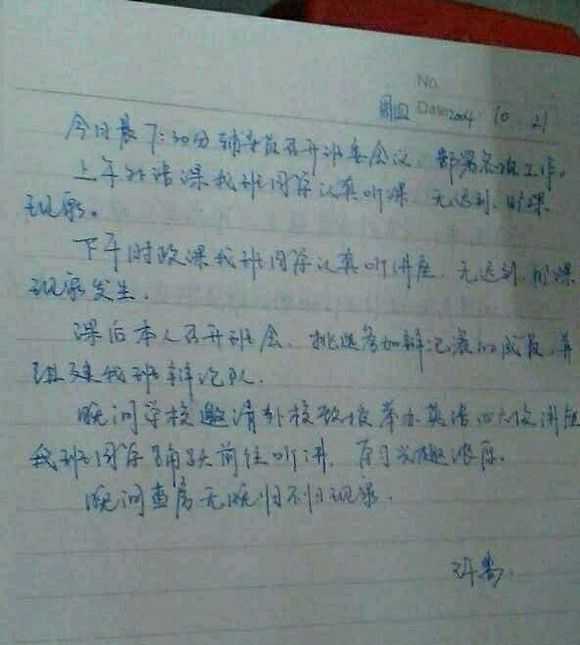 No.
周四 Date 2004. 10. 21
今日晨7:30分辅导员召开班委会议,部署各项工作。
上午外语课我班同学认真听课,无迟到、旷课
现象。
下午时政课我班同学认真听讲座,无迟到、旷课
现象发生。
课后本人召开班会、挑选参加辩论赛的成员,并
组建我班辩论队。
晚间学校邀请外校教授举办英语四六级
我班同学踊跃前往听讲,兴趣浓厚。
晚间查房无晚归不归现象。